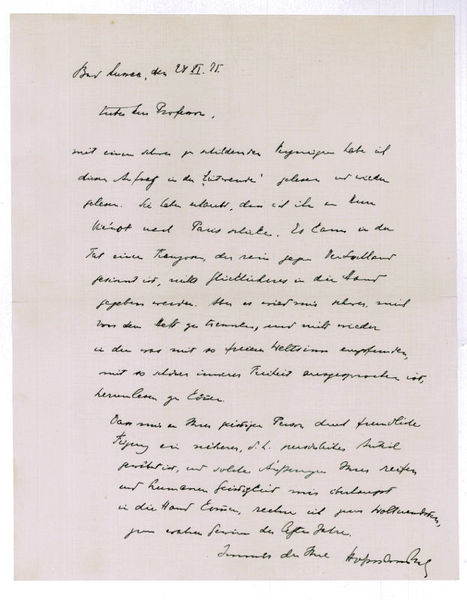 Bad Aussee, den 24 XI. 25.
lieber Herr Professor,
mit einem schwer zu schildernden Vergnügen habe ich
diesen Aufsatz in der gelesen und wieder
gelesen. Sie haben erlaubt, dass ich ihn an
nach Paris schicke. Es kann in der
Tat einem Franzosen, der rein gegen Deutschland
gesinnt ist, nichts glücklicheres in die Hand
gegeben werden. Aber es wird mir schwer, mich
von dem Heft zu trennen, und nicht wieder
in dem was mit so freiem Weltsinn empfunden,
mit so schöner innerer Freiheit ausgesprochen ist,
herumlesen zu können.
Dass mir an Ihrer geistigen Person durch freundliche
Fügung ein näherer, d. h. persönlicher Anteil
gewährt ist, und solche Äußerungen Ihrer reifen
und humanen Geistigkeit mir überhaupt
in die Hand kommen, rechne ich zum
zum wahren Gewinn der letzten Jahre.
Immer der Ihre Hofmannsthal